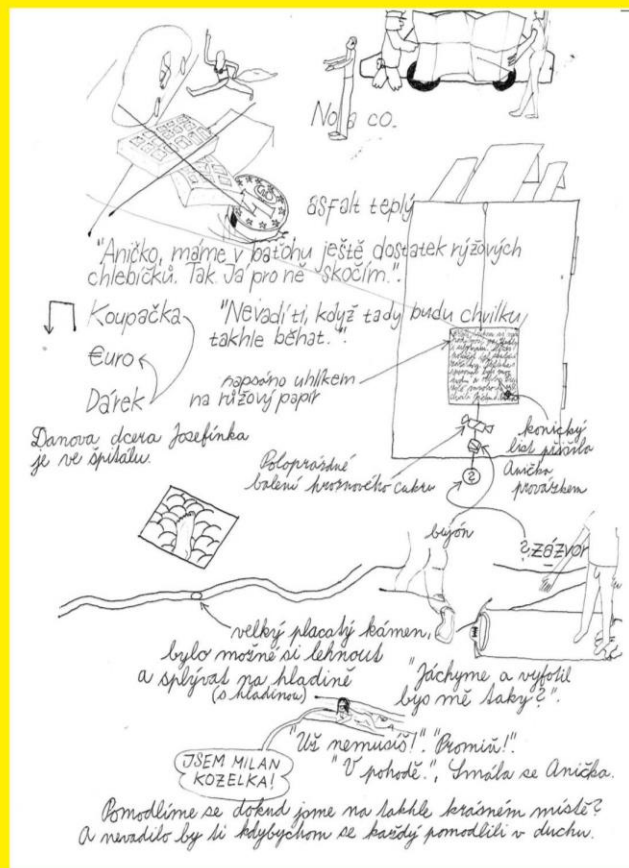 No a co.
asfalt teplý
"Aničko, máme v baťohu ještě dostatek rýžových
chlebíčků. Tak já pro ně skočím.".
Koupačka
"Nevadí ti, když tady budu chvilku
takhle běhat.".
€uro
Dárek
napsáno uhlíkem
na růžový papír
Danova dcera Josefínka
je ve špitálu.
Poloprázdné
balení hroznového cukru
konický
list přišila
Anička
provázkem
2
bujón
?zázvor
velký placatý kámen,
bylo možné si lehnout
a splývat na hladině
(s hladinou)
"Jáchyme a vyfotil
bys mě taky?".
"Už nemusíš!". "Promiň!".
"V pohodě.", Smála se Anička.
JSEM MILAN
KOZELKA!
Pomodlíme se dokud jsme na takhle krásném místě?
A nevadilo by ti kdybychom se každý pomodlili v duchu.